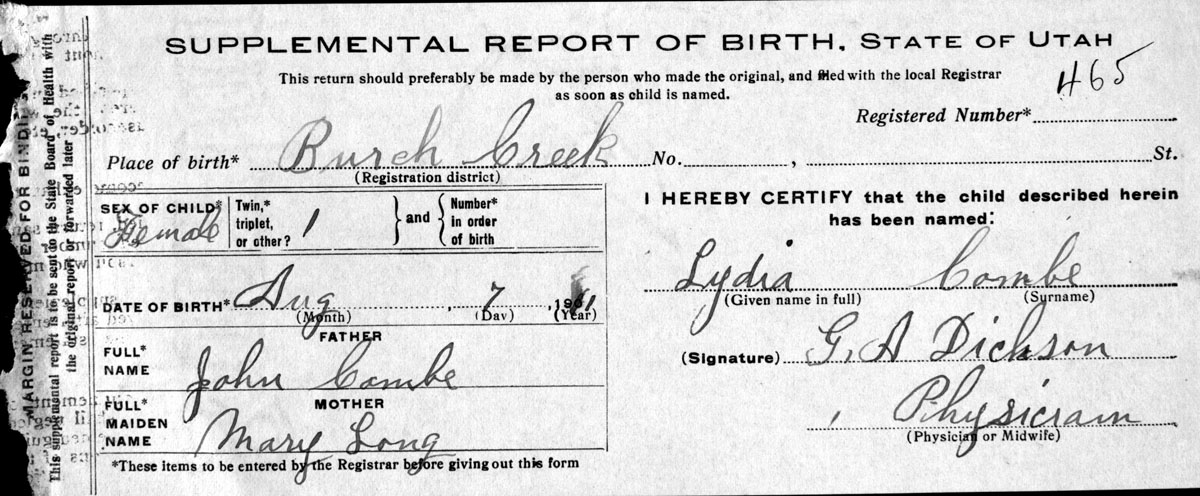 SUPPLEMENTAL REPORT OF BIRTH. STATE OF UTAH
This return should preferably be made by the person who made the original, and filed with the local Registrar
as soon as child is named.
465
Registered Number*
Place of birth* Burch Creek No. , St.
(Registration district)
SEX OF CHILD*
Female
Twin,*
triplet,
or other? 1
and
Number*
in order
of birth
DATE OF BIRTH* Aug 7, 19
(Month) (Day) (Year)
FATHER
FULL*
NAME
John Combe
MOTHER
FULL*
MAIDEN
NAME
Mary Long
*These items to be entered by the Registrar before giving out this form
I HEREBY CERTIFY that the child described herein
has been named:
Lydia Combe
(Given name in full) (Surname)
(Signature) G. A Dickson
Physician
(Physician or Midwife)
MARGIN RESERVED FOR BINDING
This supplemental report is to be sent to the State Board of Health with
the original report or forwarded later